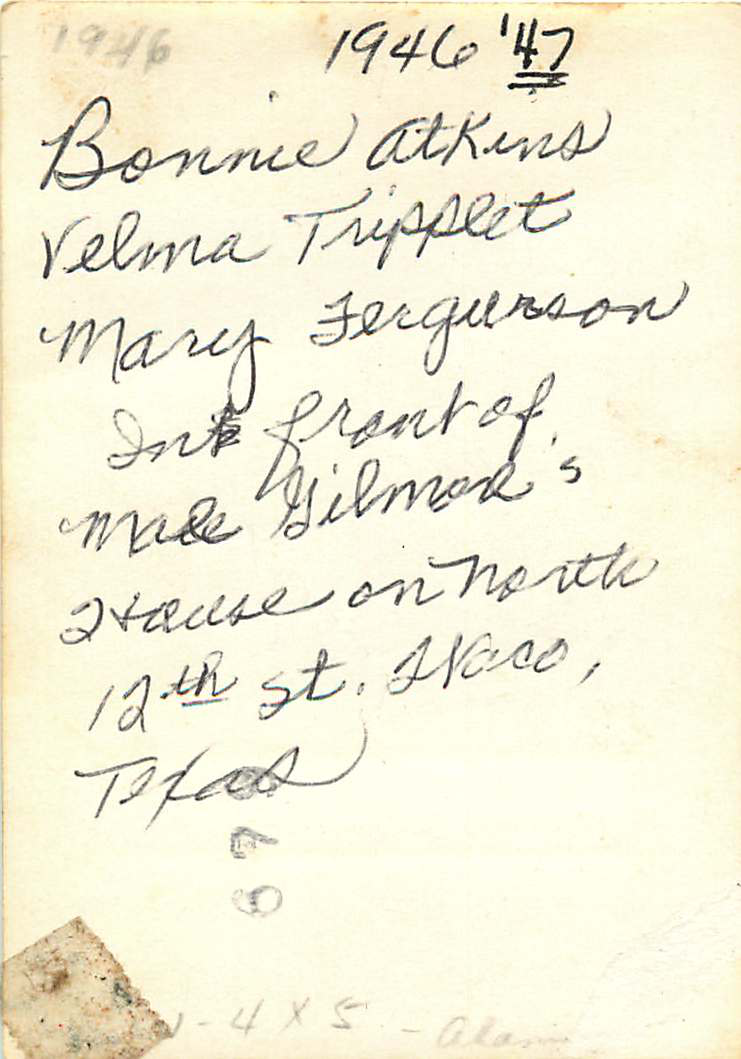 1946 1946 '47
Bonnie Atkins
Velma Tripplet
Mary Fergurson
In front of
Mae Gilmore's
House on North
12th St. Waco,
Texas
67
- 4 X 5 -